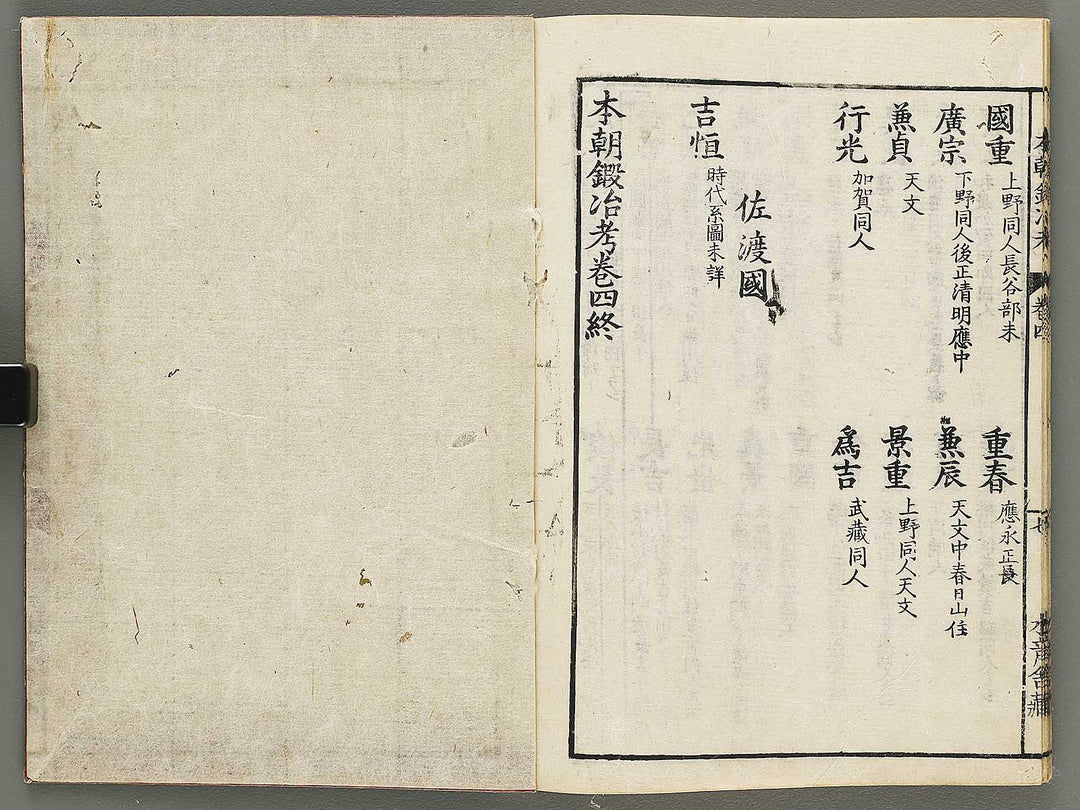 國重 上野同人長谷部末
重春 應永正長
廣宗 下野同人後正清明應中
兼辰 天文中春日山住
兼貞 天文
景重 上野同人天文
行光 加賀同人
爲吉 武藏同人
佐渡國
吉恒 時代系圖未詳
本朝鍛冶考巻四終
本朝鍛冶考 巻四